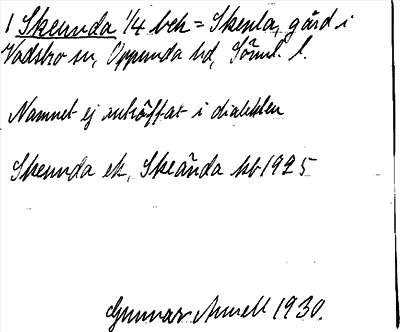 1 Skeunda 1/4 beh = Skenla, gård i
Vadsbro sn, Oppunda hd, Söml. l.
Namnet ej anträffat i dialekten
Skeunda ek, Skeända hb 1925
Gunnar Amell 1930.